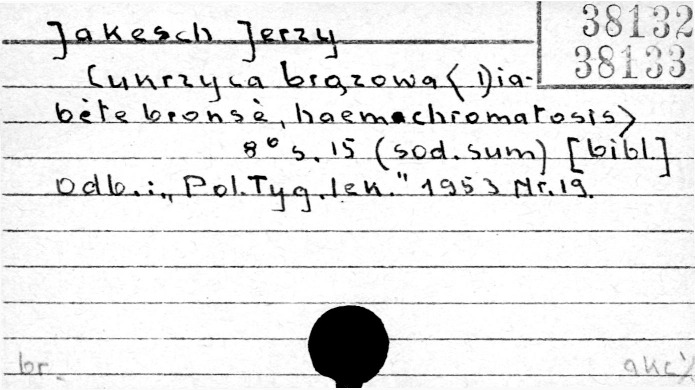 38132
38133
Jakesch Jerzy
Cukrzyca brązowa <Dia-
bète bronsè, haemochromatosis>
8° s. 15 (sod. sum) [bibl.]
Odb.: „Pol. Tyg. lek." 1953 Nr. 19.
br. akc